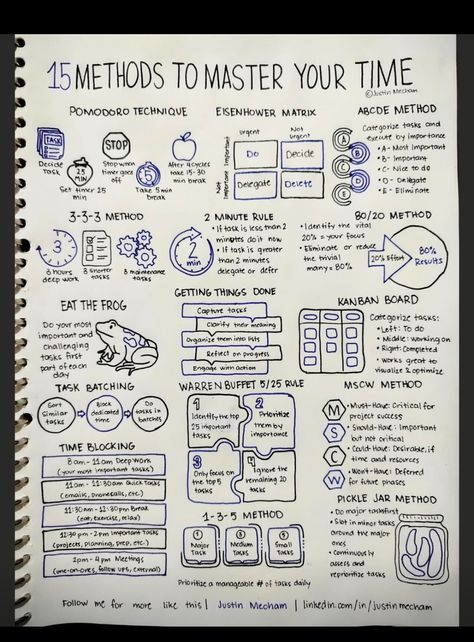 15 METHODS TO MASTER YOUR TIME
©Justin Mecham
POMODORO TECHNIQUE
TASK
Decide
Task
25
MIN
Set timer 25
min
STOP
Stop when
timer goes
off
5
Take 5 min
break
After 4 cycles
take 15-30
min break
EISENHOWER MATRIX
Urgent
Not
Urgent
Important
Not Important
Do
Decide
Delegate
Delete
ABCDE METHOD
Categorize tasks and
execute by importance
A
B
C
D
E
• A - Most Important
• B - Important
• C - Nice to do
• D - Delegate
• E - Eliminate
3-3-3 METHOD
3
3 hours
deep work
3 shorter
tasks
3 maintenance
tasks
2 MINUTE RULE
2
min
• If task is less than 2
minutes do it now
• If task is greater
than 2 minutes
delegate or defer
80/20 METHOD
• Identify the vital
20% = your focus
• Eliminate or reduce
the trivial
many = 80%
20% Effort
80%
Results
EAT THE FROG
Do your most
important and
challenging
tasks first
part of
each day
GETTING THINGS DONE
Capture tasks
Clarify their meaning
Organize them into lists
Reflect on progress
Engage with action
KANBAN BOARD
Categorize tasks:
• Left: To do
• Middle: Working on
• Right: Completed
• Works great to
visualize & optimize
TASK BATCHING
Sort
similar
tasks
Block
dedicated
time
Do
tasks in
batches
WARREN BUFFET 5/25 RULE
1
Identify the top
25 important
tasks
2
Prioritize
them by
importance
3
Only focus on
the top 5
tasks
4
Ignore the
remaining 20
tasks
MSCW METHOD
M
• Must-Have: Critical for
project success
S
• Should-Have: Important
but not critical
C
• Could-Have: Desirable, if
time and resources
W
• Won't-Have: Deferred
for future phases
TIME BLOCKING
8 am - 11 am Deep Work
(your most important tasks)
11 am - 11:30 am Quick Tasks
(emails, phone calls, etc.)
11:30 am - 12:30 pm Break
(eat, exercise, relax)
12:30 pm - 2pm Important Tasks
(projects, planning, prep, etc.)
2pm - 4 pm Meetings
(one-on-ones, follow ups, external)
1-3-5 METHOD
1
Major
Task
3
Medium
Tasks
5
Small
Tasks
Prioritize a manageable # of tasks daily
PICKLE JAR METHOD
• Do major tasks first
• Slot in minor tasks
around the major
ones
• Continuously
assess and
reprioritize tasks
Follow me for more like this | Justin Mecham | linkedin.com/in/justinmecham